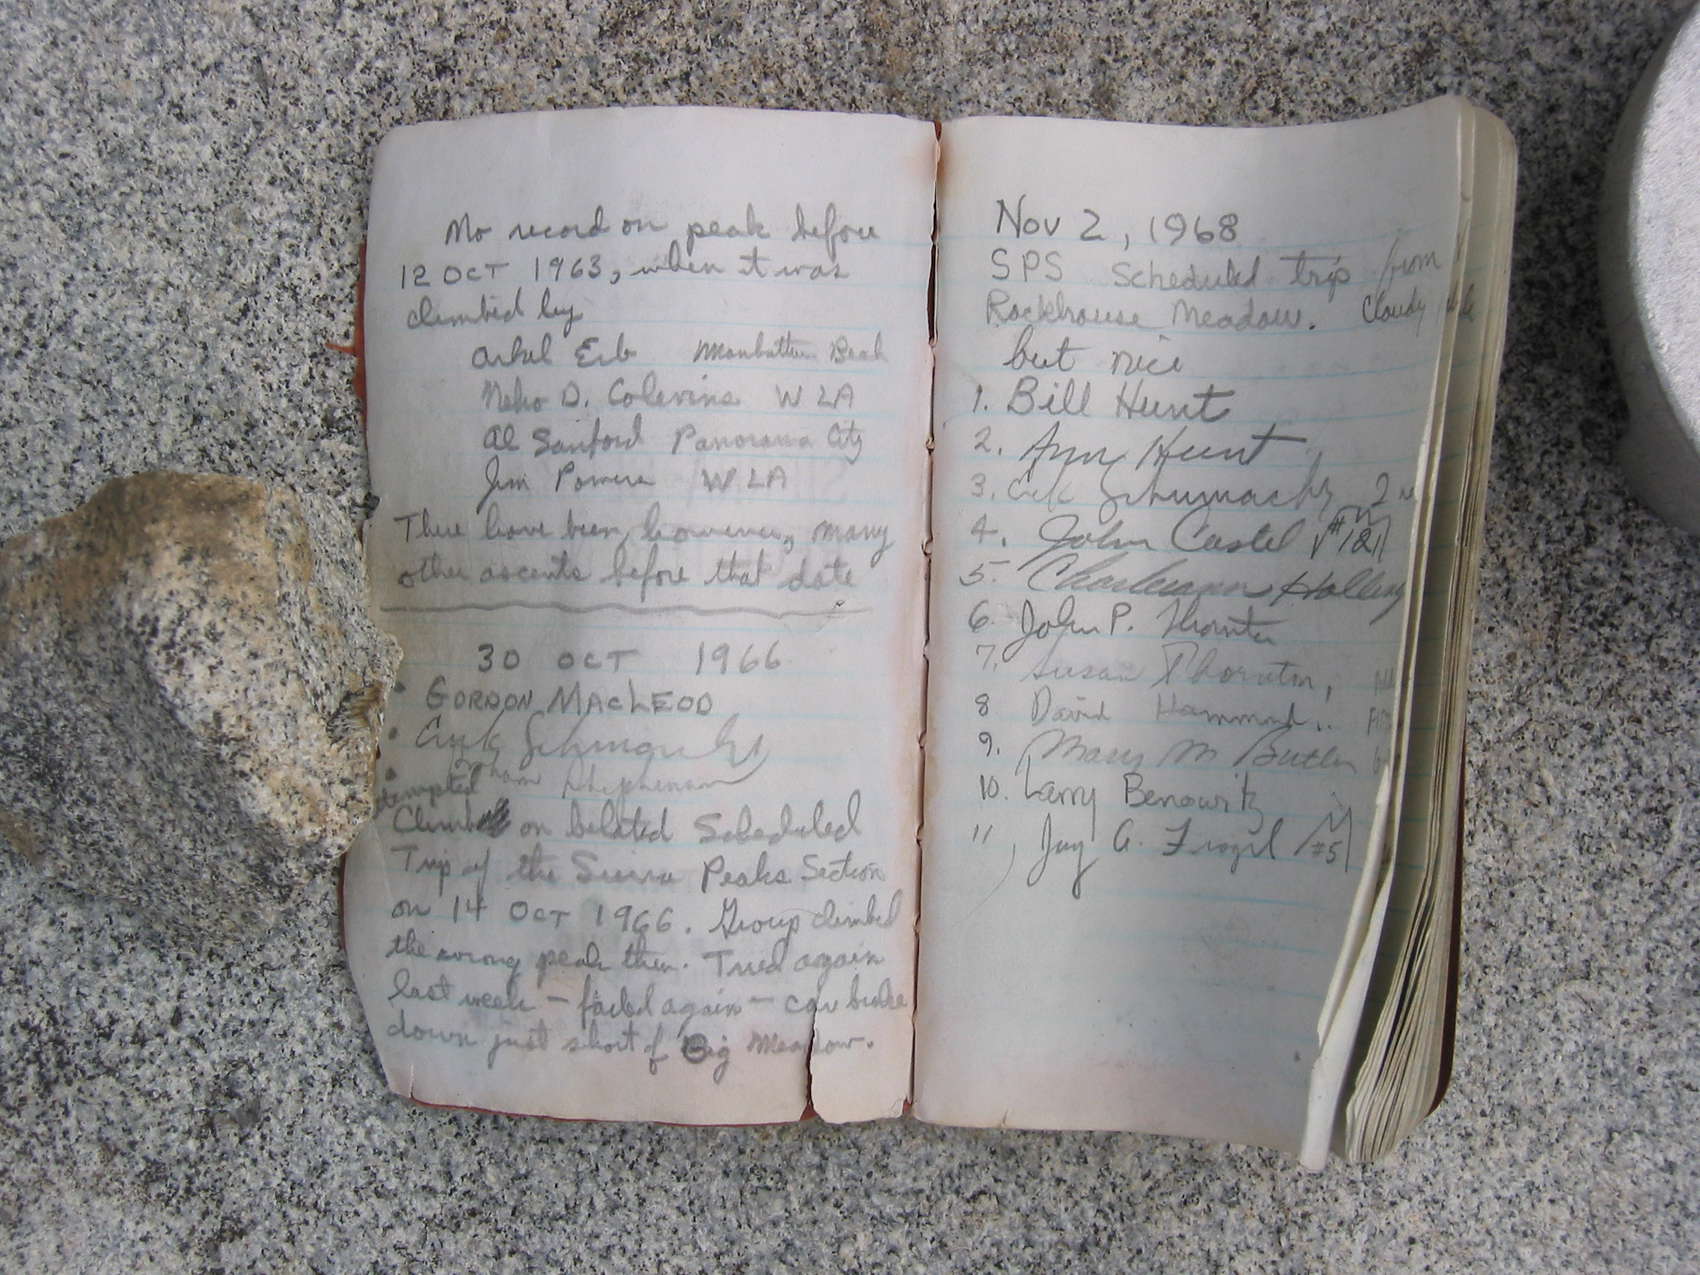 No record on peak before
12 OCT 1963, when it was
climbed by
Arkel Erb Manhattan Beach
Neko D. Colevins W LA
Al Sanford Panorama City
Jim Powers W LA
There have been, however, many
other ascents before that date
30 OCT 1966
• GORDON MACLEOD
•
• Graham Stephenson
attempted
Climb on belated Scheduled
Trip of the Sierra Peaks Section
on 14 OCT 1966. Group climbed
the wrong peak then. Tried again
last week – failed again – car broke
down just short of Big Meadow.
Nov 2, 1968
SPS Scheduled trip from
Rockhouse Meadow. Cloudy
but nice
1. Bill Hunt
2. Ann Hunt
3. Schumacher 2nd
4. John Castel #121
5.
6. John P. Thornton
7. Susan Thornton,
8 David Hammond..
9. Mary M Butler
10. Larry Benowitz
11, Jay A. #5